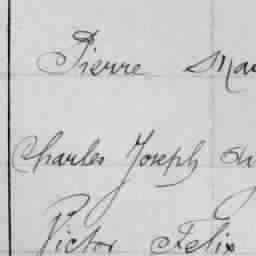 Pierre
Charles Joseph
Victor Felix